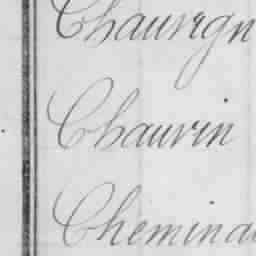 Chauvign
Chauvin
Chemina